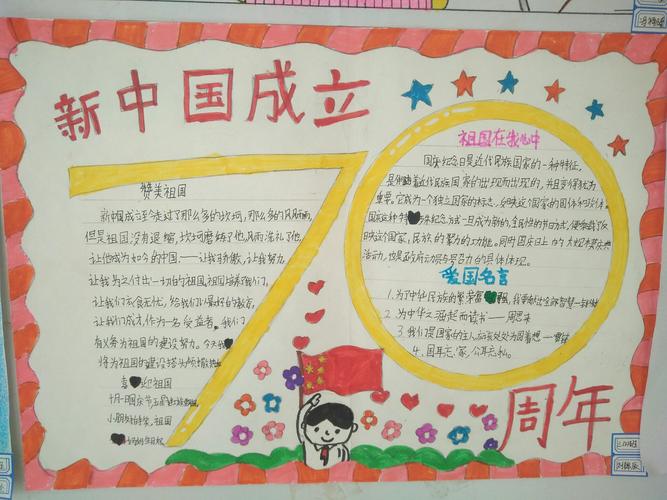 新中国成立
70
周年
赞美祖国
新中国成立至今走过了那么多的坎坷,那么多的风风雨雨,
但是祖国没有退缩,坎坷磨练了他,风雨洗礼了他,
让他成为如今的中国——让我骄傲,让我努力,
让我为之付出一切的祖国,祖国培养了我们,
让我们衣食无忧,给我们最好的教育,
让我们成才,作为一名受益者,我们
有义务为祖国的建设努力。今天我
将为祖国的建设
祖国
十月一日国庆节
小朋友
祖国
祖国在我心中
国庆纪念日是近代民族国家的一种特征,
是伴随着近代民族国家的出现而出现的,并且变得尤为
重要。它成为一个独立国家的标志,反映这个国家的国体和政体。
国庆这种特殊纪念方式一旦成为新的、全民性的节日形式,便承载了反
映这个国家、民族的凝聚力的功能。同时国庆日上的大规模庆典
活动,也是政府动员与号召力的具体体现。
爱国名言
1.为了中华民族的繁荣富强,我要献出全部智慧
2.为中华之崛起而读书——周恩来
3.我们是国家的主人,应该处处为国着想——雷锋
4.国耳忘家,公耳忘私。